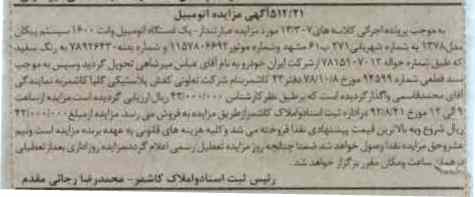 ۵۱۲/۲۱آگهی مزایده اتومبیل
به موجب پرونده اجرائی کلاسه های ۷-۱۳۳۰ مورد مزایده عبارتنداز- یک دستگاه اتومبیل وانت ۱۶۰۰ سیستم پیکان
مدل۱۳۷۸ به شماره شهربانی۲۷۱ ب۶۱ مشهد وشماره موتور۱۱۵۷۸۰۶۶۹۲ و شماره بدنه-۷۸۹۲۶۴۳ به رنگ سفید.
که طبق شماره حواله ۷۸۱۵۱۰۷۰۱۲ ازشرکت ایران خودرو به نام آقای عباس میرشاهی تحویل گردید وسپس به موجب
سند قطعی شماره ۹۴۵۹۹ مورخ ۷۸/۱۰/۸ دفتر۲۳ کاشمربنام شرکت تعاونی کفش پلاستیکی گلپا کاشمربه نمایندگی
آقای محمدقاسمی واگذارگردیده است که برطبق نظرکارشناس ۴۳/۰۰۰/۰۰۰ ریال ارزیابی گردیده است مزایده ازساعت
۹ الی ۱۲ مورخ ۹۲/۸/۲۱ در اداره ثبت اسنادواملاک کاشمرازطریق مزایده به فروش می رسد. مزایده ازمبلغ۴۳/۰۰۰/۰۰۰
ریال شروع وبه بالاترین قیمت پیشنهادی نقدا فروخته می شد وکلیه هزینه های قانونی به عهده برنده مزایده است ونیم
عشروحق مزایده نقدا وصول خواهد شد. ضمنا چنانچه روز مزایده تعطیل رسمی اعلام گرددمزایده روزاداری بعدازتعطیلی
درهمان ساعت ومکان مقرر برگزار خواهد شد.
رئیس ثبت اسنادواملاک کاشمر- محمدرضا رجائی مقدم